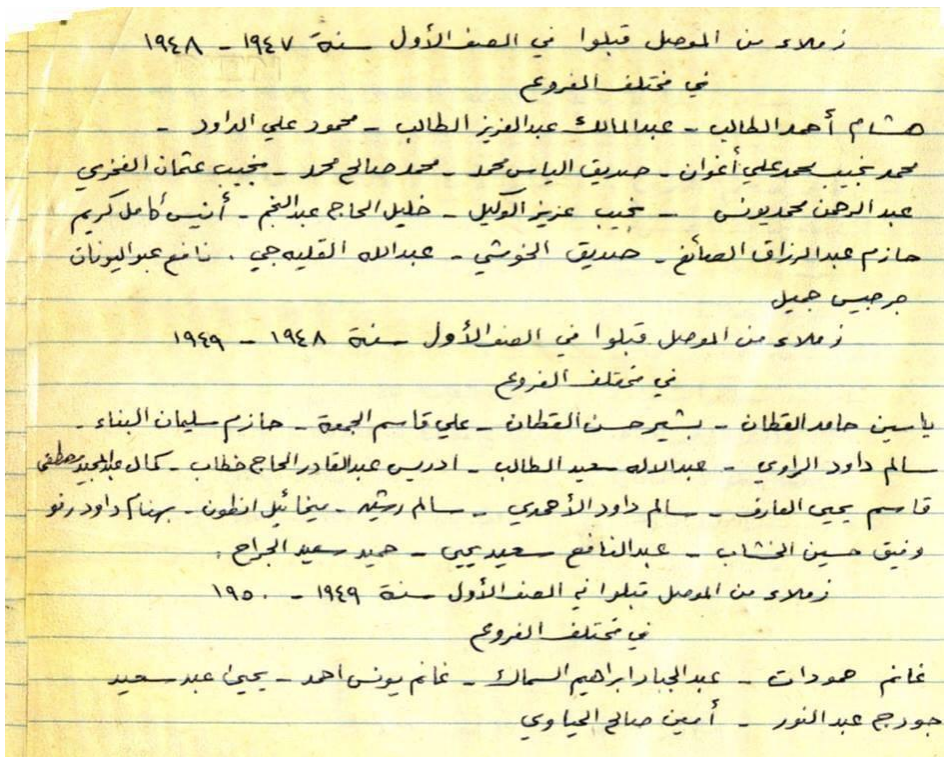 زملاء من الموصل قبلوا في الصف الأول سنة ١٩٤٧ - ١٩٤٨
في مختلف الفروع
هشام أحمد الطالب - عبدالمالك عبدالعزيز الطالب - محمود علي الداود -
محمد نجيب محمد علي أغوان - صديق الياس محمد - محمد صالح محمد - نجيب عثمان الفخري
عبد الرحمن محمد يونس - نجيب عزيز الوكيل - خليل الحاج عبدالنجم - أنيس كامل كريم
حازم عبدالرزاق الصائغ - صديق الخوشي - عبدالله القليه جي . نافع عبواليونان
جرجيس جميل
زملاء من الموصل قبلوا في الصف الأول سنة ١٩٤٨ - ١٩٤٩
في مختلف الفروع
ياسين حامد القطان - بشير حسن القطان - علي قاسم الجمعة - حازم سليمان البناء -
سالم داود الراوي - عبدالاله سعيد الطالب - ادريس عبدالقادر الحاج خطاب - كمال عبدالمجيد مصطفى
قاسم يحيى العارف - سالم داود الأحمدي - سالم رشيد - ميخائيل انطون - بهنام داود رفو
وفيق حسين الخشاب - عبدالنافع سعيد يحيى - حميد سعيد الجراح .
زملاء من الموصل قبلوا في الصف الأول سنة ١٩٤٩ - ١٩٥٠
في مختلف الفروع
غانم حمودات - عبدالجبار ابراهيم السماك - غانم يونس احمد - يحيى عبد سعيد
جورج عبد النور - أمين صالح الحياوي